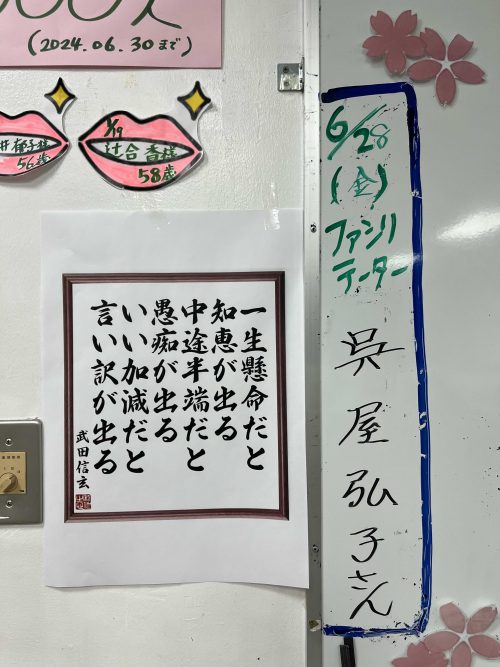 (2024.06.30まで)
56歳
1/19
辻合香様
58歳
一生懸命だと
知恵が出る
中途半端だと
愚痴が出る
いい加減だと
言い訳が出る
武田信玄
6/28
(金)
ファシリ
テーター
呉屋弘子さん